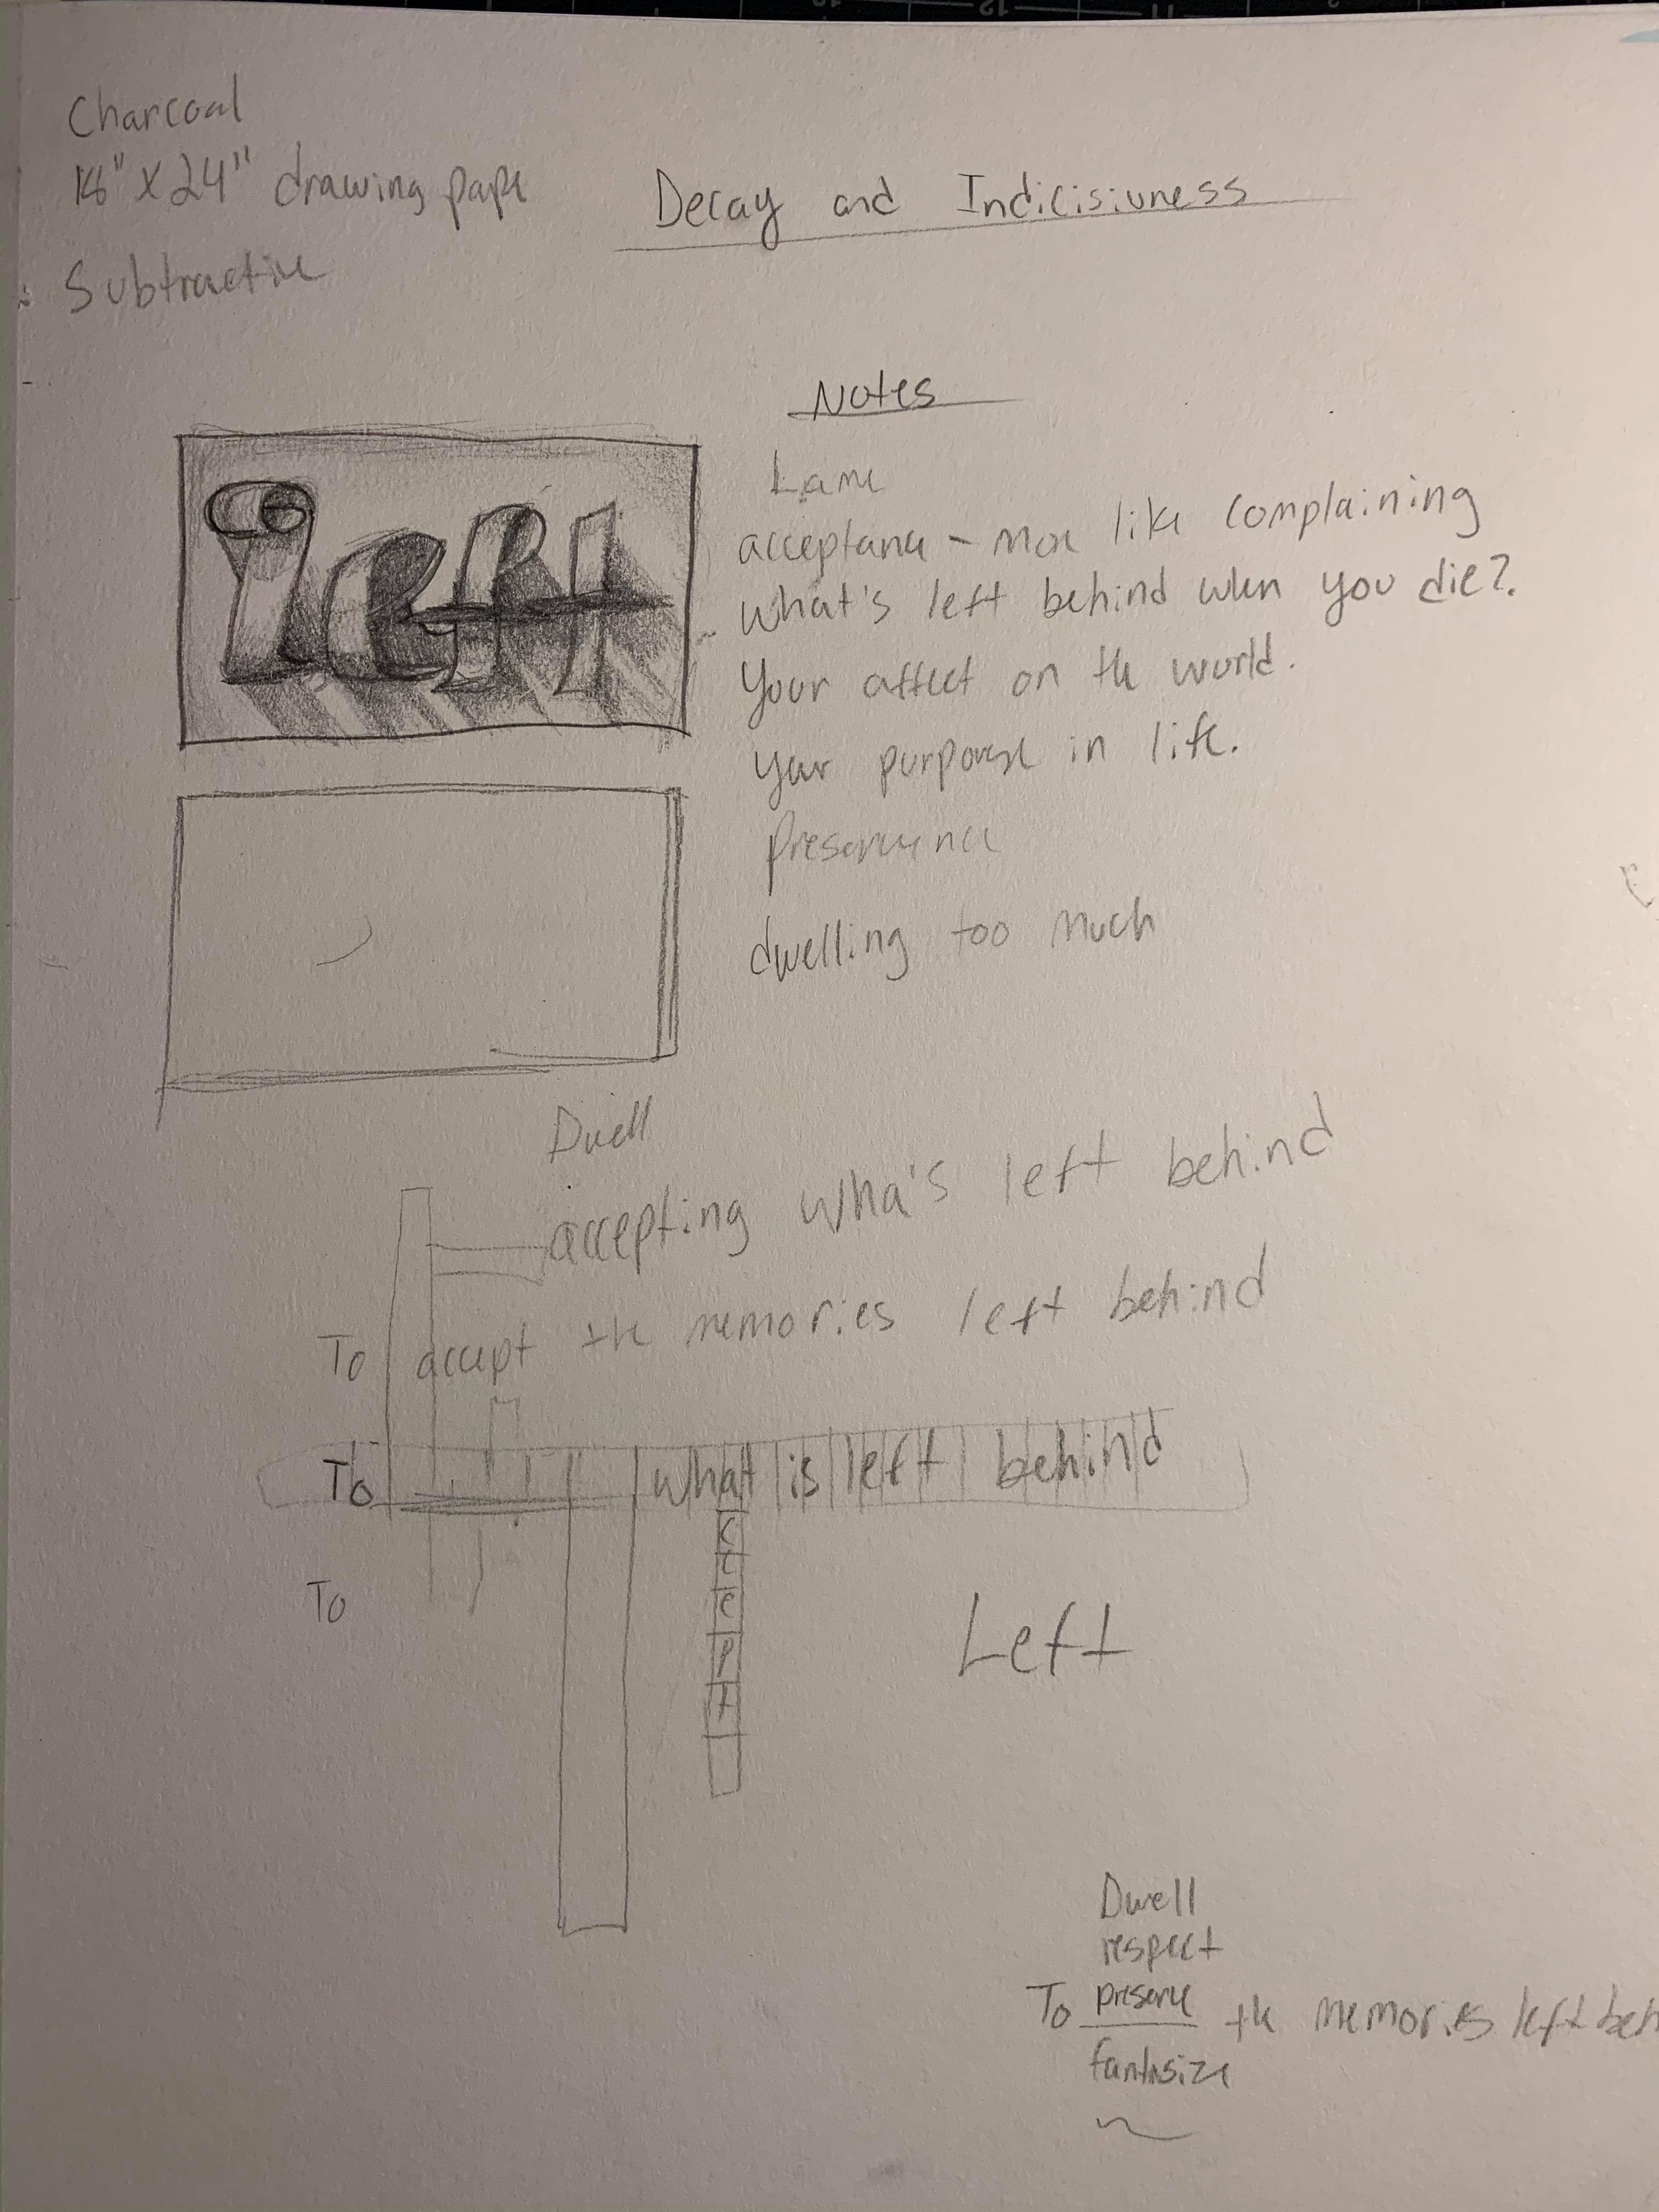 Charcoal
18" X 24" drawing pape
Subtractive
Decay and Indicisivness
left
Notes
Lame
acceptance - more like complaining
what's left behind when you die?
Your affect on the world.
your purpose in life.
dwelling too much
Dwell
accepting wha's left behind
To accept the memories left behind
To what is left behind
c
c
e
p
t
To
Left
Dwell
respect
To preserve the memories left beh
fantasize